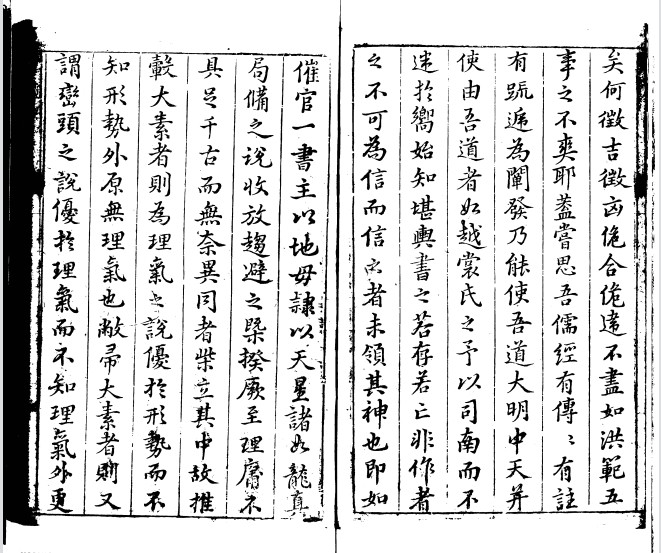 矣何徵吉徵凶佹合佹違不盡如洪範五
事之不爽耶蓋嘗思吾儒經有傳〻有註
有疏遞為闡發乃能使吾道大明中天并
使由吾道者如越裳氏之予以司南而不
迷於嚮始知堪輿書之若存若亡非作者
之不可為信而信之者未領其神也即如
催官一書主以地毋隷以天星諸如龍真
局備之说收放趨避之槩揆厥至理靡不
具足千古而無奈異同者柴立其中故推
轂大素者則為理氣之説優於形勢而不
知形勢外原無理氣也敝帚大素者則又
謂巒頭之說優於理氣而不知理氣外更